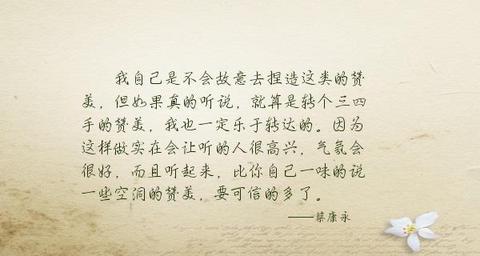 我自己是不会故意去捏造这类的赞
美，但如果真的听说，就算是转个三四
手的赞美，我也一定乐于转达的。因为
这样做实在会让听的人很高兴，气氛会
很好，而且听起来，比你自己一味的说
一些空洞的赞美，要可信的多了。
——蔡康永